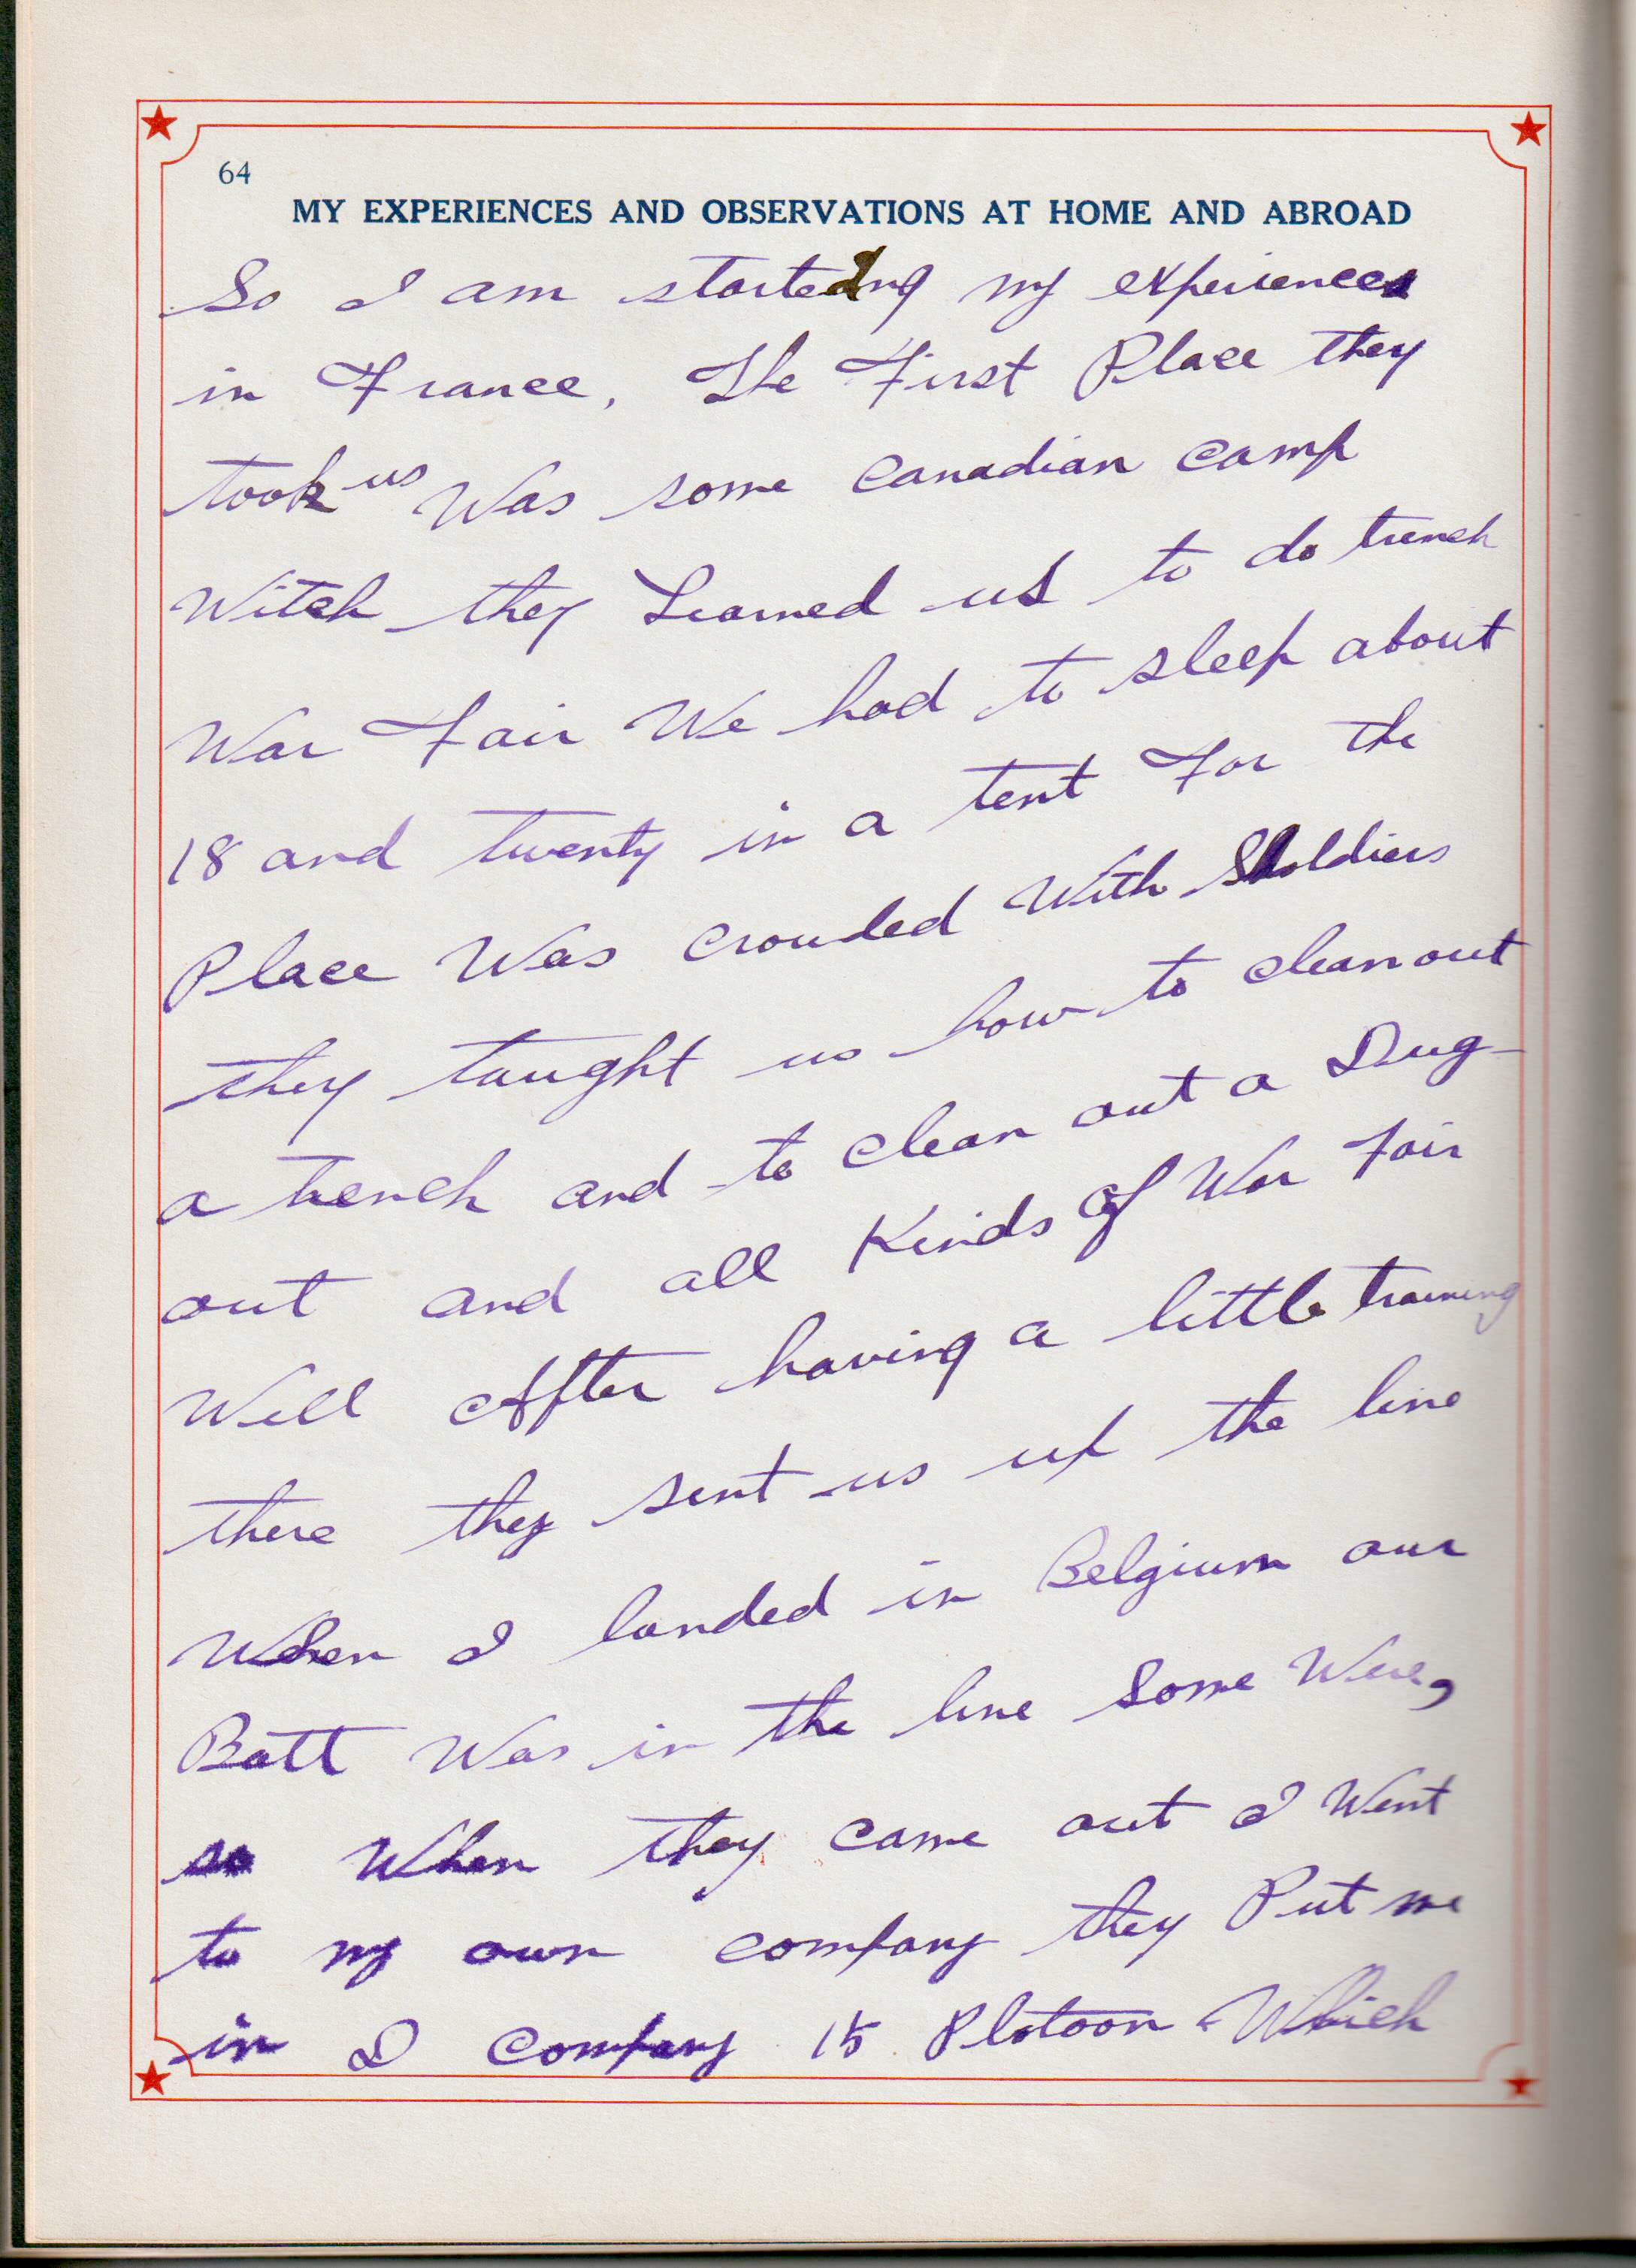 64
MY EXPERIENCES AND OBSERVATIONS AT HOME AND ABROAD
So I am starteding my experiences
in France, The First Place they
took us Was some Canadian camp
Witch they Learned us to do trench
War Fair We had to sleep about
18 and twenty in a tent For the
Place Was crouded With Soldiers
they taught us how to clean out
a trench and to clean out a Dug-
out and all Kinds of War Fair
Well After having a little training
there they sent us up the line
When I landed in Belgium our
Batt Was in the line some Were,
so When they came out I Went
to my own company they Put me
in D Company 15 Platoon Which